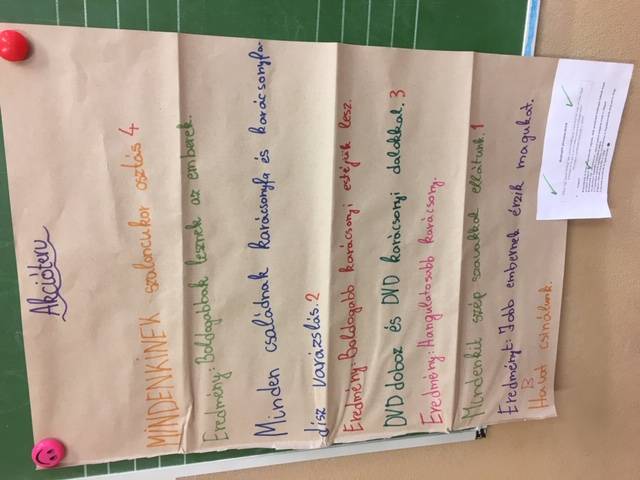 Akcióterv
MINDENKINEK szaloncukor osztás 4
Eredmény: Boldogabbak lesznek az emberek.
Minden családnak karácsonyfa és karácsonyfa-
dísz varázslás. 2
Eredmény: Boldogabb karácsonyi estéjük lesz.
DVD doboz és DVD karácsonyi dalokkal. 3
Eredmény: Hangulatosabb karácsony.
Mindenkit szép szavakkal ellátunk. 1
Eredményt: Jobb embernek érzik magukat.
B
Halat csinálunk.